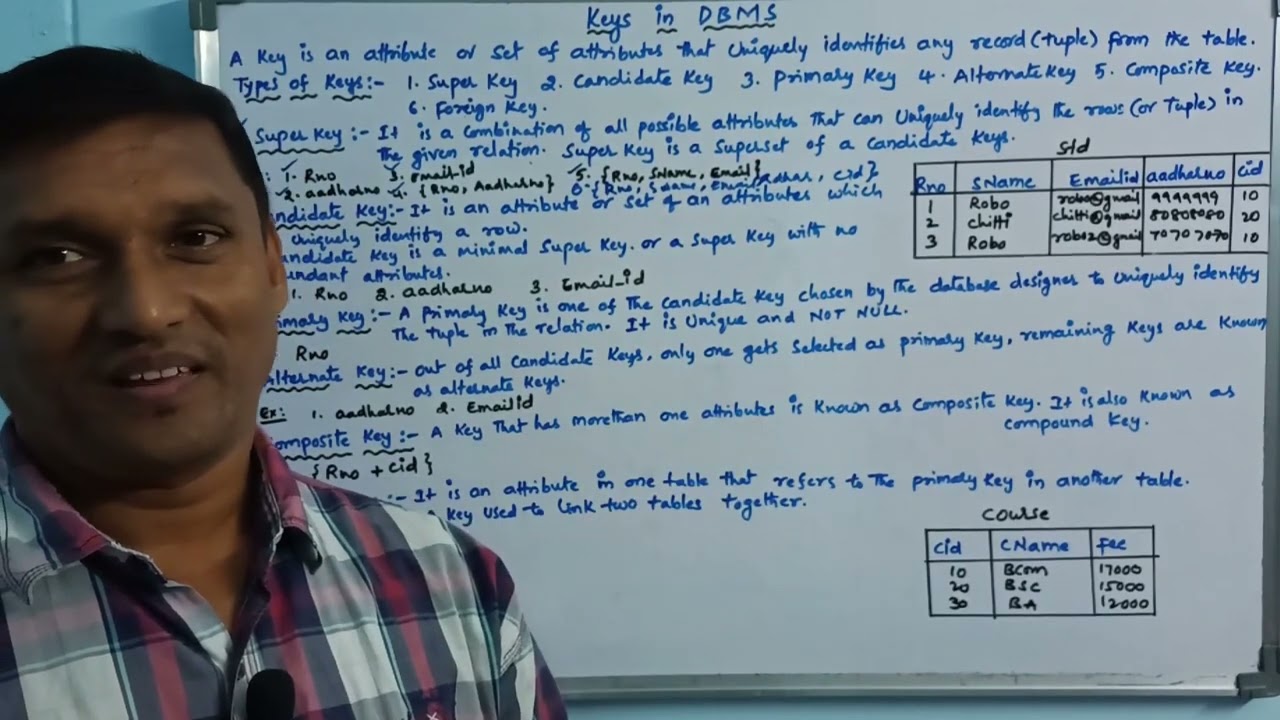 Keys in DBMS
A Key is an attribute or set of attributes that Uniquely identifies any record (tuple) from the table.
Types of Keys:- 1. Super Key 2. Candidate Key 3. Primary Key 4. Alternate Key 5. Composite Key.
6. Foreign Key.
Super Key:- It is a combination of all possible attributes that can Uniquely identify the rows (or Tuple) in
The given relation. Super Key is a Superset of a Candidate Keys.
: 1. Rno 3. Email-id 5. {Rno, SName, Email}
2. aadharno 4. {Rno, Aadharno} 6. {Rno, Sname, Email, aadhar, cid}
andidate Key:- It is an attribute or set of an attributes which
Uniquely identify a row.
andidate Key is a minimal Super Key. or a Super Key with no
undant attributes.
1. Rno 2. aadharno 3. Email-id
imary Key:- A Primary Key is one of The Candidate Key chosen by The database designer to Uniquely identify
The tuple in The relation. It is Unique and NOT NULL.
Rno
Alternate Key:- out of all Candidate Keys, only one gets Selected as primary Key, remaining Keys are Known
as alternate Keys.
Ex: 1. aadharno 2. Emailid
omposite Key:- A Key That has morethan one attributes is Known as Composite Key. It is also Known as
Compound Key.
{Rno + Cid}
:- It is an attribute in one table that refers to The primary Key in another table.
Key used to link two tables together.
Std
Rno SName Emailid aadharno Cid
1 Robo robo@gmail 9999999 10
2 chitti chitti@gmail 80808080 20
3 Robo robo2@gmail 70707070 10
Course
Cid CName Fee
10 BCom 17000
20 BSC 15000
30 BA 12000